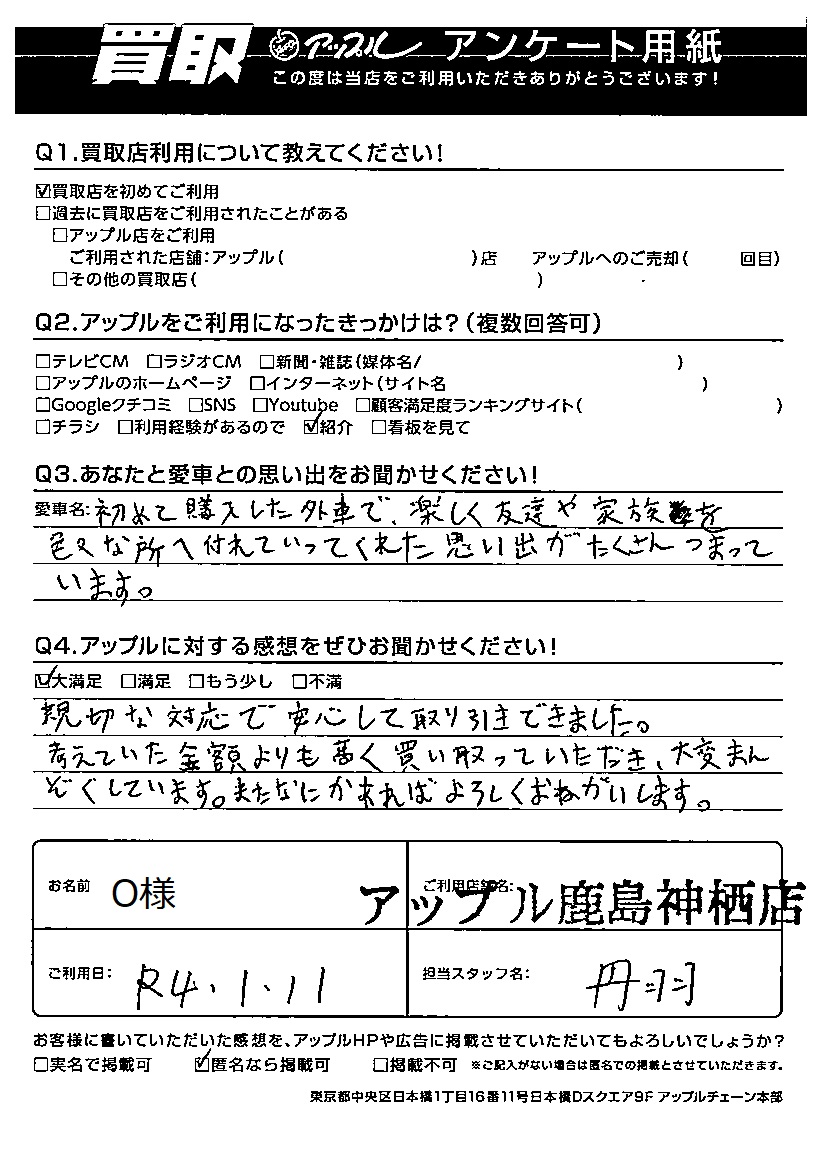 買取 アップル アンケート用紙
この度は当店をご利用いただきありがとうございます!
Q1.買取店利用について教えてください!
☑買取店を初めてご利用
□過去に買取店をご利用されたことがある
□アップル店をご利用
ご利用された店舗:アップル( )店 アップルへのご売却( 回目)
□その他の買取店( )
Q2.アップルをご利用になったきっかけは?(複数回答可)
□テレビCM □ラジオCM □新聞・雑誌(媒体名/ )
□アップルのホームページ □インターネット(サイト名 )
□Googleクチコミ □SNS □Youtube □顧客満足度ランキングサイト( )
□チラシ □利用経験があるので ☑紹介 □看板を見て
Q3.あなたと愛車との思い出をお聞かせください!
愛車名:初めて購入した外車で、楽しく友達や家族を
色々な所へ付れていってくれた思い出がたくさんつまって
います。
Q4.アップルに対する感想をぜひお聞かせください!
☑大満足 □満足 □もう少し □不満
親切な対応で安心して取り引きできました。
考えていた金額よりも高く買い取っていただき、大変まん
ぞくしています。またなにかあればよろしくおねがいします。
お名前 O様 ご利用店舗名: アップル鹿島神栖店
ご利用日: R4.1.11 担当スタッフ名: 丹羽
お客様に書いていただいた感想を、アップルHPや広告に掲載させていただいてもよろしいでしょうか?
□実名で掲載可 ☑匿名なら掲載可 □掲載不可 ※ご記入がない場合は匿名での掲載とさせていただきます。
東京都中央区日本橋1丁目16番11号日本橋Dスクエア9F アップルチェーン本部